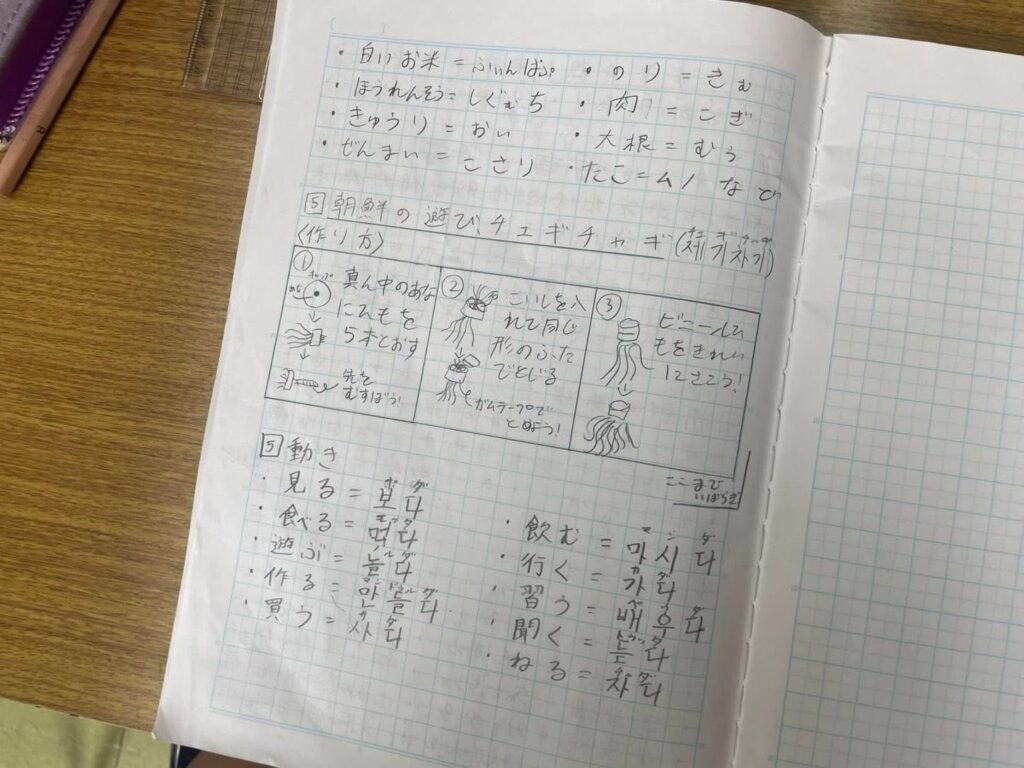 ・白いお米=ふぃんばぷ ・のり=きむ
・ほうれんそう=しぐむち ・肉=こぎ
・きゅうり=おい ・大根=むう
・ぜんまい=こさり ・たこ=ムノ なむ
5 朝鮮の遊び、チェギチャギ(제기차기)
チェ ギ チャ ギ
〈作り方〉
① 真ん中のあな
にひもを
5本とおす
キャップ
あな
先を
むすぼう!
② こいしを入
れて同じ
形のふた
でとじる
ガムテープで
とめよう!
③ ビニールひ
もをきれい
にさこう!
ここまで
いばらぎ
5 動き
・見る=보다
ボ ダ
・食べる=먹다
・遊ぶ=놀다
・作る=만들다
・買う=사다
・飲む=마시다
マ シ ダ
・行く=가다
・習う=배우다
・聞く=듣다
・ねる=자다